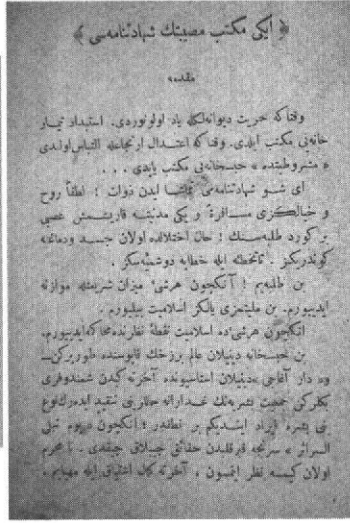 ﴿ ایکی مکتب مصیبتك شهادتنامه‌سی ﴾
مقدمه
وقتاکه حریت دیوانه‌لکله یاد اولونوردی. استبداد تیمار
خانه‌یی مکتب ایلدی. وقتاکه اعتدال ارتجاعله التباس اولندی
« مشروطیتده » حبسخانه‌یی مکتب یاپدی . . . .
ای شو شهادتنامه‌می تماشا ایدن ذوات ! لطفاً روح
و خیالکزی مسافرةً و یکی مدنیته قاریشمش عصبی
بر کورد طلبه‌سنك ! حال اختلالده اولان جسد ودماغنه
کوندریکز . تا تخطئه ایله خطایه دوشمیه‌سکز .
بن طلبه‌یم ! آنکچون هرشیئی میزان شریعتله موازنه
ایدییورم. بن ملیتمزی یالکز اسلامیت بیلییورم .
آنکچون هرشیئی‌ده اسلامیت نقطهٔ نظرنده محاکمه ایدییورم.
بن حبسخانه دینیلان عالم برزخك قاپوسنده طوررکن
وه دار آغاجی دینیلان استاسیونده آخرته کیدن شمندوفری
بکلرکن جمعیت بشریه‌نك غدارانه حاللرینی تنقید ایدەرك نوع
بنی بشره ایراد ایتدیکم بر نطقدر ! آنکچون « یوم تبلی
السرائر » سرنجه قبر قلبدن حقائق چیپلاق چیقدی. نا محرم
اولان کیمسه نظر ایتمسون ، آخرته کمال اشتیاق ایله مهیایم .